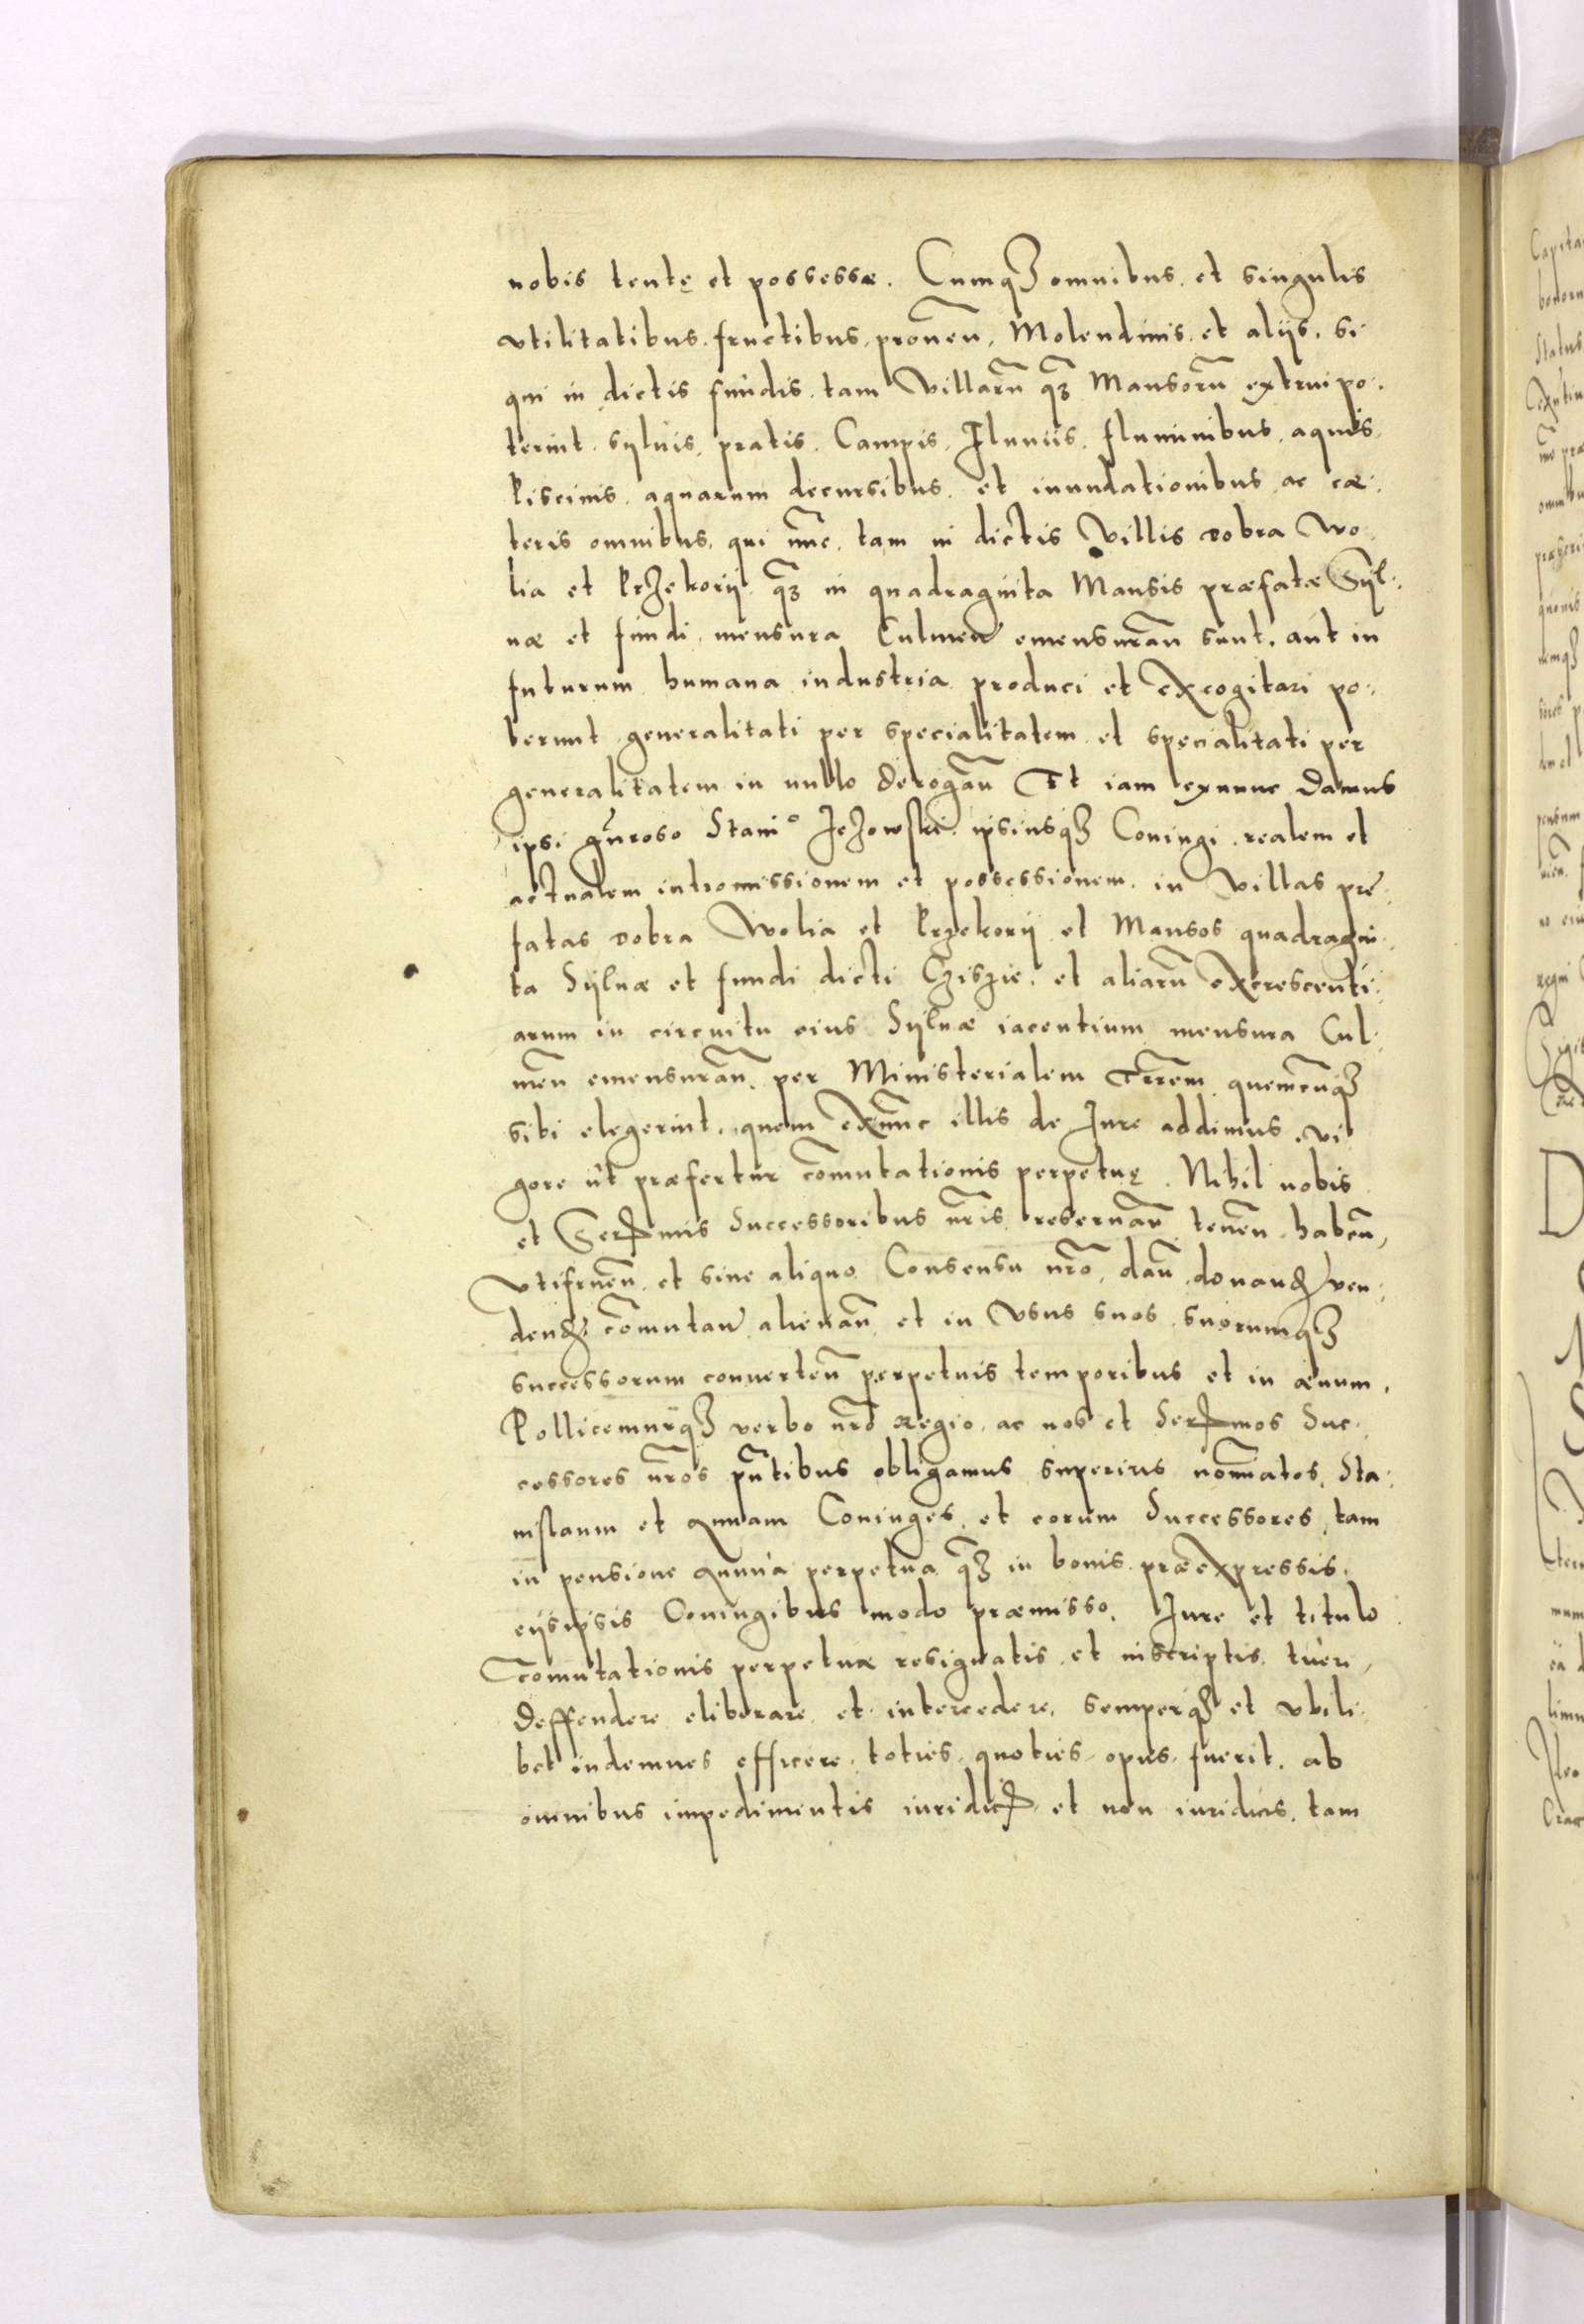 nobis tentę et possessæ. Cumqʒ omnibus et singulis
vtilitatibus. fructibus, prouen̄, Molendinis et aliȷs, si
qui in dictis fundis, tam Villarū qʒ Mansorū extrui po-
terint, syluis, pratis, Campis, Fluuiis, fluminibus, aquis,
Piscinis, aquarum decursibus, et inundationibus ac cæ-
teris omnibus, qui nūc, tam in dictis Villis Dobra Wo-
lia et Przekorij, qʒ in quadraginta Mansis præfatæ Syl-
uæ et fundi, mensura Culmen̄ emensurān sunt, aut in
futurum humana industria produci et excogitari po-
terunt, generalitati per specialitatem et specialitati per
generalitatem in nullo derogān Et iam exnunc Damus
ipsi gn̄roso Staniᵒ Jeżowski, ipsiusqʒ Coniugi, realem et
actualem intromissionem et possessionem, in Villas prę-
fatas Dobra Wolia et Przekorij et Mansos quadragin-
ta Syluæ et fundi dicti Cziszie, et aliarū excrescenti-
arum in circuitu eius Syluæ iacentium mensura Cul-
men̄ emensurān, per Ministerialem Trr̄em quemcūqʒ
sibi elegerint, quem exnūc illis de Jure addimus, vi-
gore ut præfertur cōmutationis perpetuę. Nihil nobis
et Serꝭmis Successoribus nr̄is reseruān, tenen̄, haben̄,
Vtifruen̄, et sine aliquo Consensu nr̄o, dan̄, donanꝭ, ven-
denꝭ, cōmutan̄, alienān et in Vsus suos, suorumqʒ
successorum conuerten̄ perpetuis temporibus et in æuum.
Pollicemurqʒ verbo nr̄o Regio, ac nos et Serꝭmos Suc-
cessores nr̄os pn̄tibus obligamus superius nom̄iatos, Sta-
nislaum et Annam Coniuges, et eorum Successores, tam
in pensione Annua perpetua, qʒ in bonis præexpressis,
eijsipsis Coniugibus modo præmisso, Jure et titulo
Cōmutationis perpetuæ resignatis, et inscriptis, tueri,
Deffendere eliberare, et intercedere, semperqʒ et vbili-
bet indemnes efficere, toties, quoties, opus, fuerit, ab
omnibus impedimentis iuridicꝭ, et non iuridicis, tam